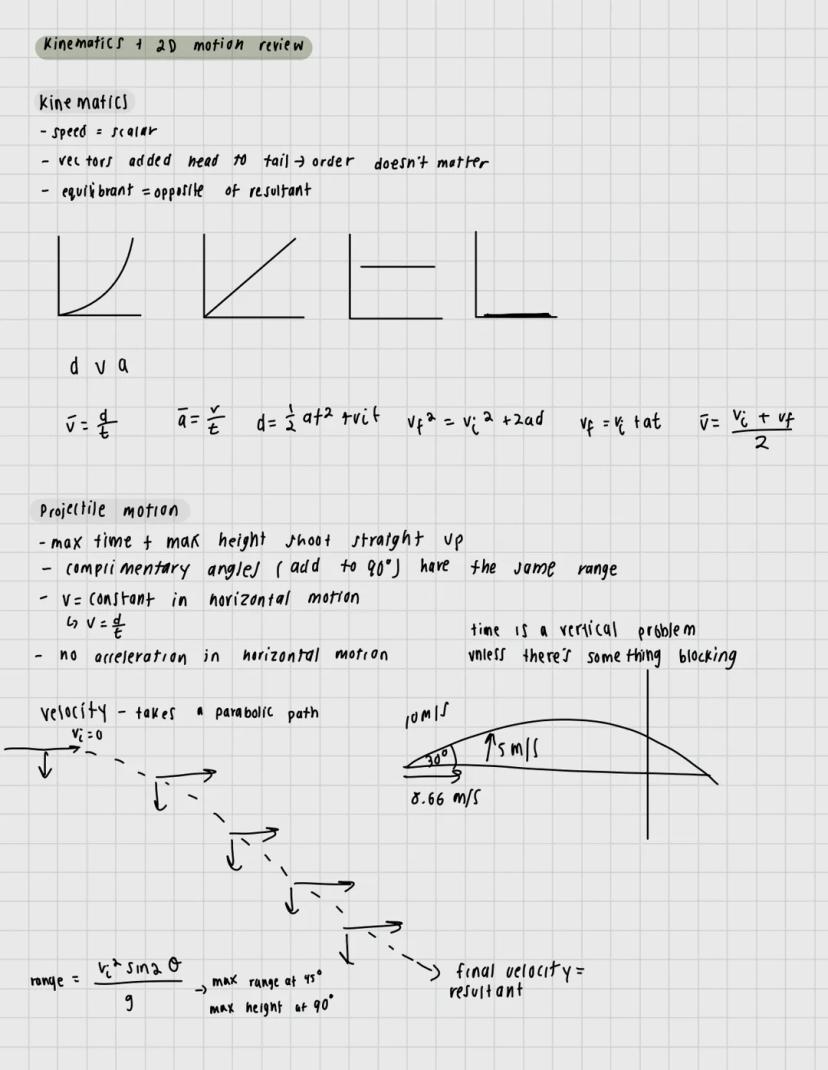 kinematics + 2D motion review
kinematics
- speed = scalar
- vectors added head to tail → order doesn't matter
- equilibrant = opposite of resultant
d v a
v̄ = d/t   ā = v/t   d = 1/2 at² + vit   vf² = vi² + 2ad   vf = vi + at   v̄ = (vi + vf)/2
Projectile motion
- max time + max height shoot straight up
- complimentary angles (add to 90°) have the same range
- v = constant in horizontal motion
↳ v = d/t
- no acceleration in horizontal motion
time is a vertical problem
unless there's something blocking
velocity - takes a parabolic path
vi = 0
10 m/s
30°
↑5 m/s
8.66 m/s
range = vi² sin2θ/g → max range at 45°
max height at 90°
final velocity =
resultant